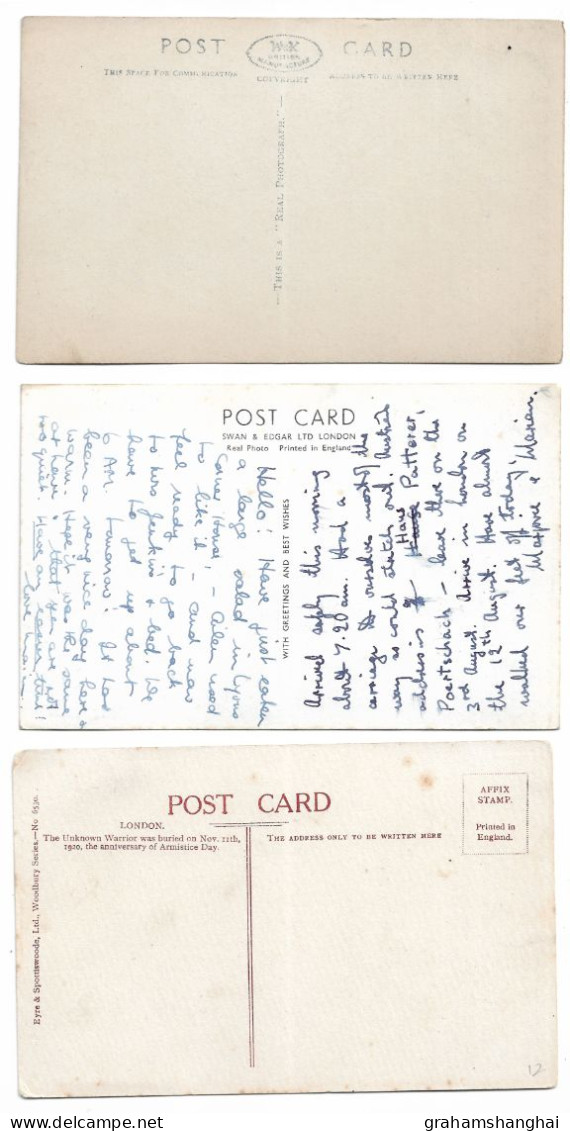 POST CARD
W&K
BRITISH
MANUFACTURE
THIS SPACE FOR COMMUNICATION
COPYRIGHT
ADDRESS TO BE WRITTEN HERE
— THIS IS A "REAL PHOTOGRAPH." —
POST CARD
SWAN & EDGAR LTD LONDON
Real Photo Printed in England
WITH GREETINGS AND BEST WISHES
Hello! Have just eaten
a large salad in Lyons
Corner House! –
to like it – and now
feel ready to go back
to Mrs Jenkins & bed. We
have to get up about
6 AM. tomorrow! It has
been a very nice day here &
warm. Hope it was the same
at home & that you are not
too quiet. Have an easier time!
Love
Arrived safely this morning
about 7.20 am. Had a
carriage to ourselves most of the
way so could stretch out. Austrian
address is Haus Patterer,
Poertschach – leave there on the
3rd August. Arrive in London on
the 12th August. Have almost
walked our feet off today!
Marjorie & Marian.
POST CARD
LONDON.
The Unknown Warrior was buried on Nov. 11th,
1920, the anniversary of Armistice Day.
THE ADDRESS ONLY TO BE WRITTEN HERE
AFFIX
STAMP.
Printed in
England.
Eyre & Spottiswoode, Ltd., Woodbury Series.—No 6530.
12
grahamshanghai